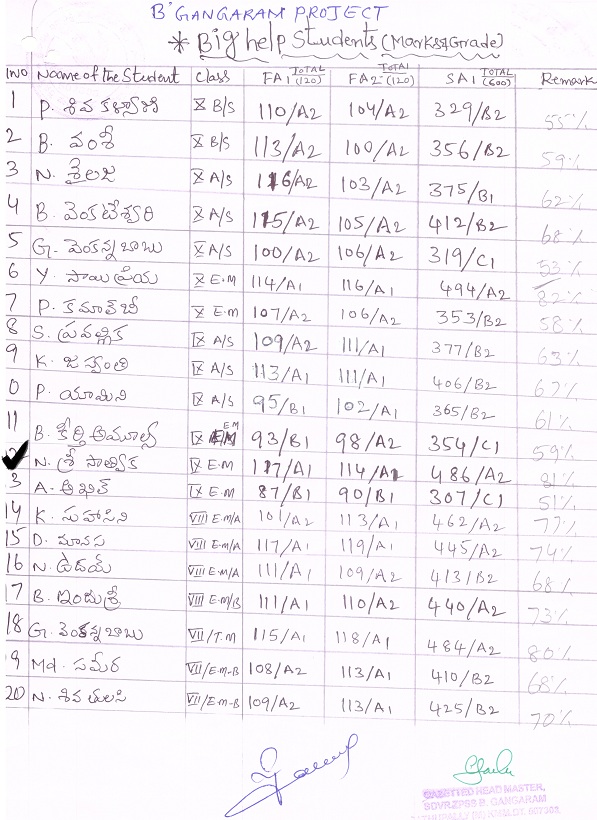 B' GANGARAM PROJECT
* Big help Students (Marks&Grade)
SNO Name of the Student Class FA1 TOTAL (120) FA2 TOTAL (120) SA1 TOTAL (600) Remark
1 P. శివ కళ్యాణి X B/S 110/A2 104/A2 329/B2 55%
2 B. వంశీ X B/S 113/A2 100/A2 356/B2 59%
3 N. శైలజ X A/S 116/A2 103/A2 375/B1 62%
4 B. వెంకటేశ్వరి X A/S 115/A2 105/A2 412/B2 68%
5 G. వెంకన్నబాబు X A/S 100/A2 106/A2 319/C1 53%
6 Y. సాయిప్రియ X E.M 114/A1 116/A1 494/A2 82%
7 P. కమాల్‌బీ X E.M 107/A2 106/A2 353/B2 58%
8 S. ప్రవల్లిక IX A/S 109/A2 111/A1 377/B2 63%
9 K. జస్వంతి IX A/S 113/A1 111/A1 406/B2 67%
0 P. యామిని IX A/S 95/B1 102/A1 365/B2 61%
11 B. కీర్తి అమూల్య IX EM 93/B1 98/A2 354/C1 59%
2 N. శ్రీ సాత్విక IX E.M 117/A1 114/A1 486/A2 81%
3 A. అఖిల్ IX E.M 87/B1 90/B1 307/C1 51%
14 K. సుహాసిని VIII E.M/A 101/A2 113/A1 462/A2 77%
15 D. మానస VIII E.M/A 117/A1 119/A1 445/A2 74%
16 N. ఉదయ్ VIII E.M/A 111/A1 109/A2 413/B2 68%
17 B. ఇందుశ్రీ VIII E.M/B 111/A1 110/A2 440/A2 73%
18 G. వెంకన్నబాబు VII/T.M 115/A1 118/A1 484/A2 80%
19 Md. సమీర VII/E.M-B 108/A2 113/A1 410/B2 68%
20 N. శివ తులసి VII/E.M-B 109/A2 113/A1 425/B2 70%
GAZETTED HEAD MASTER,
B. GANGARAM